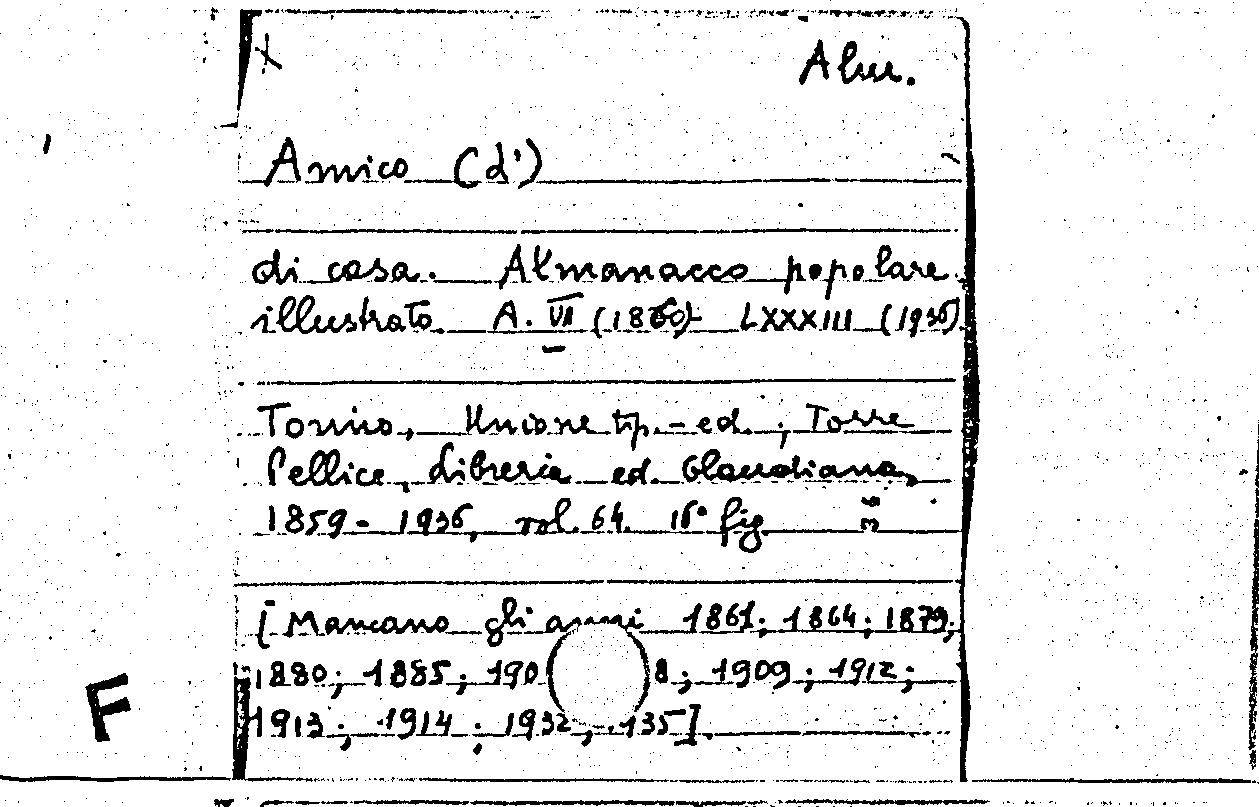 Alm.
Amico (d')
di casa. Almanacco popolare
illustrato. A. VII (1860)- LXXXIII (1936)
Torino, Unione tip.-ed.; Torre
Pellice, Libreria ed. Claudiana,
1859-1936, vol. 64. 16° fig.
[Mancano gli anni 1861; 1864; 1879;
1880; 1885; 190 8; 1909; 1912;
1913; 1914; 1932; 135].
F